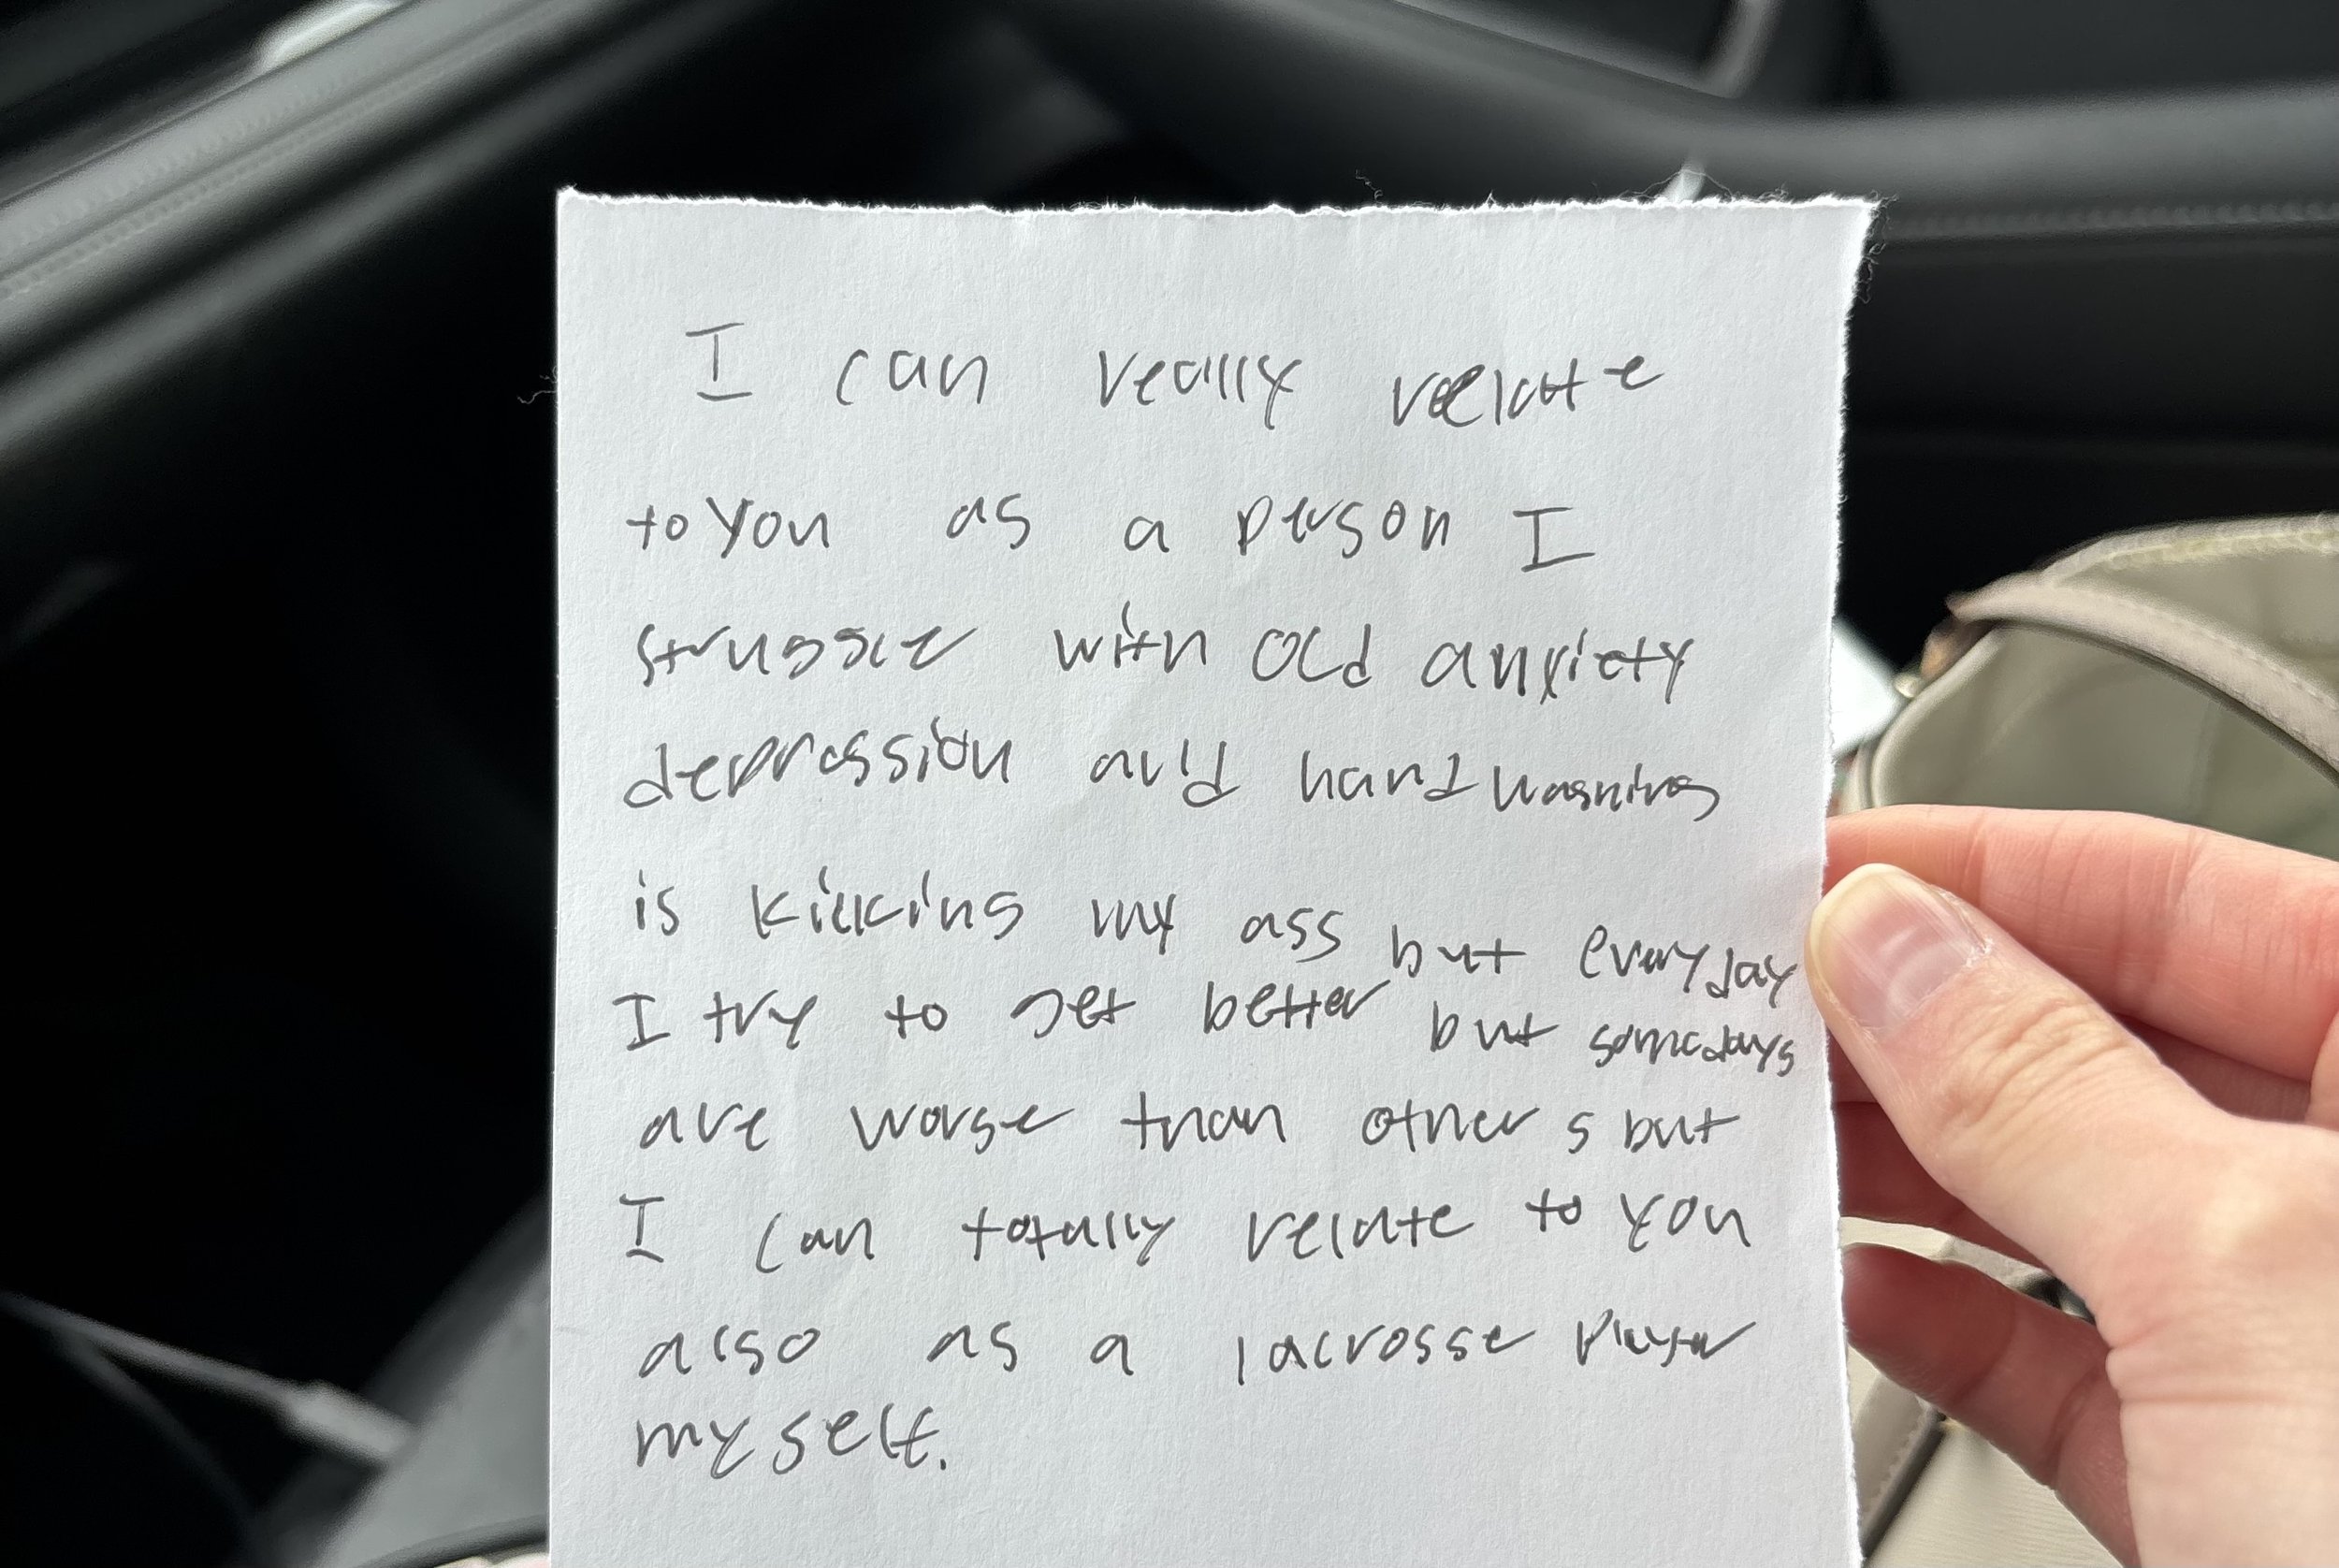 I can really relate
to you as a person I
struggle with OCd anxiety
depression and hand washing
is kicking my ass but everyday
I try to get better but somedays
are worse than others but
I can totally relate to you
also as a lacrosse player
myself.